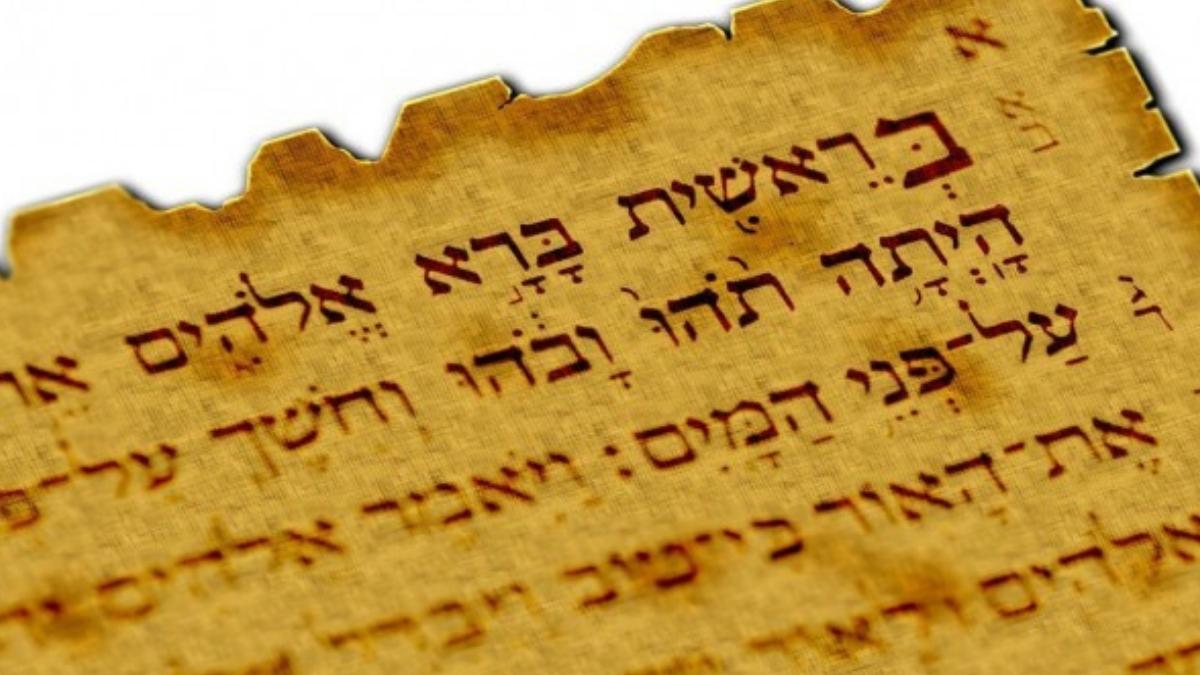 א
א בְּרֵאשִׁית בָּרָא אֱלֹהִים אֵת
הָיְתָה תֹהוּ וָבֹהוּ וְחֹשֶׁךְ עַל־פְּ
ג עַל־פְּנֵי הַמָּיִם: וַיֹּאמֶר אֱלֹהִים
אֶת־הָאוֹר כִּי־טוֹב וַיַּבְדֵּל
אֱלֹהִים לָאוֹר